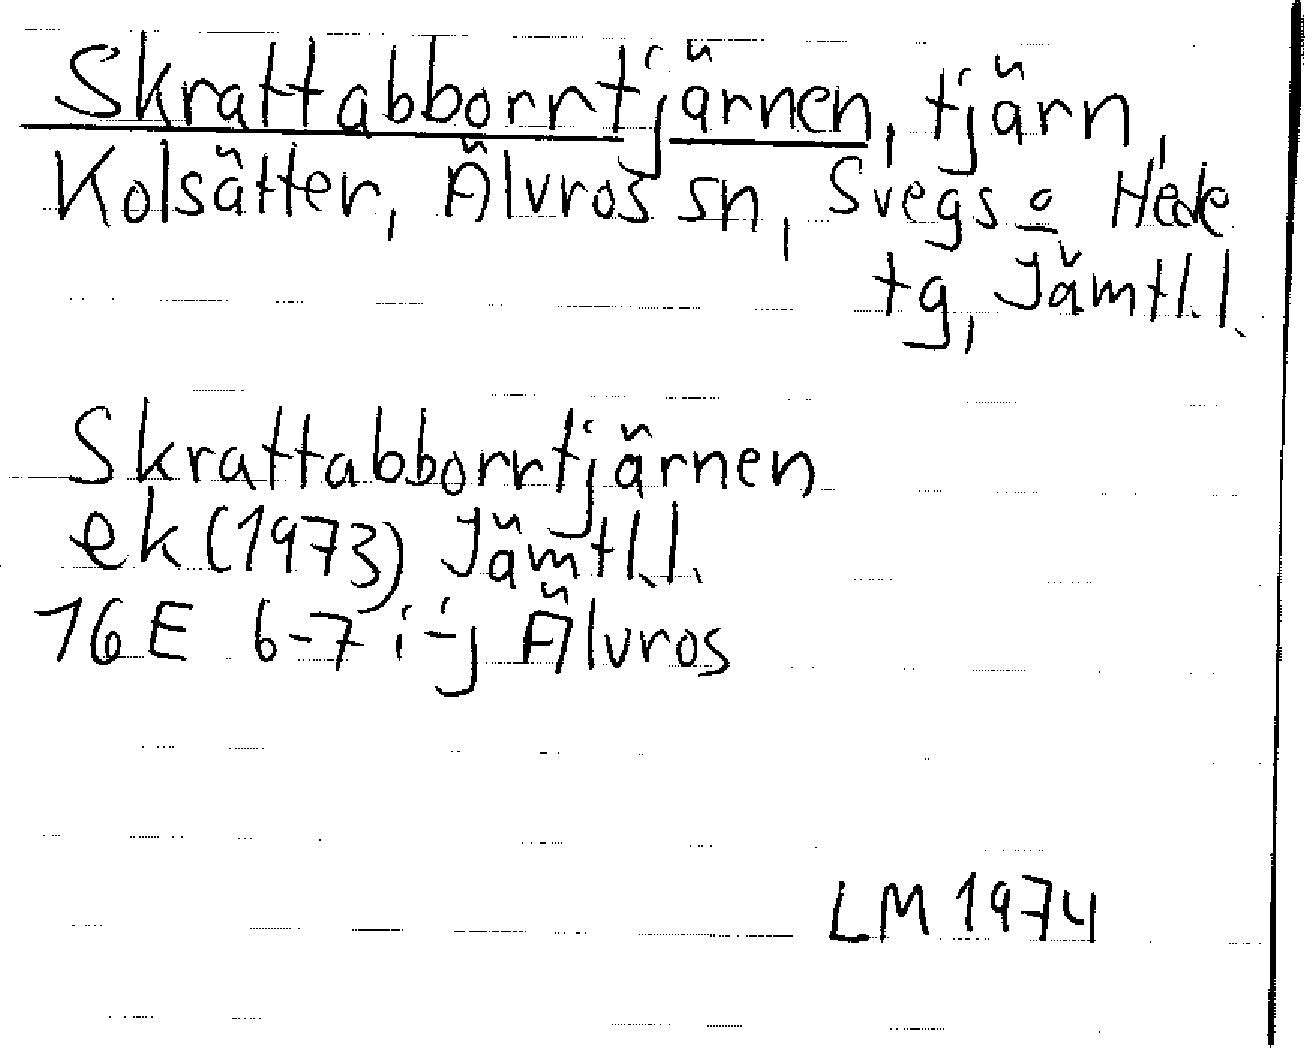 Skrattabborrtjärnen, tjärn,
Kolsätter, Älvros sn, Svegs o Hede
tg, Jämtl.l.
Skrattabborrtjärnen
ek (1973) Jämtl.l.
16E 6-7 i-j Älvros
LM 1974